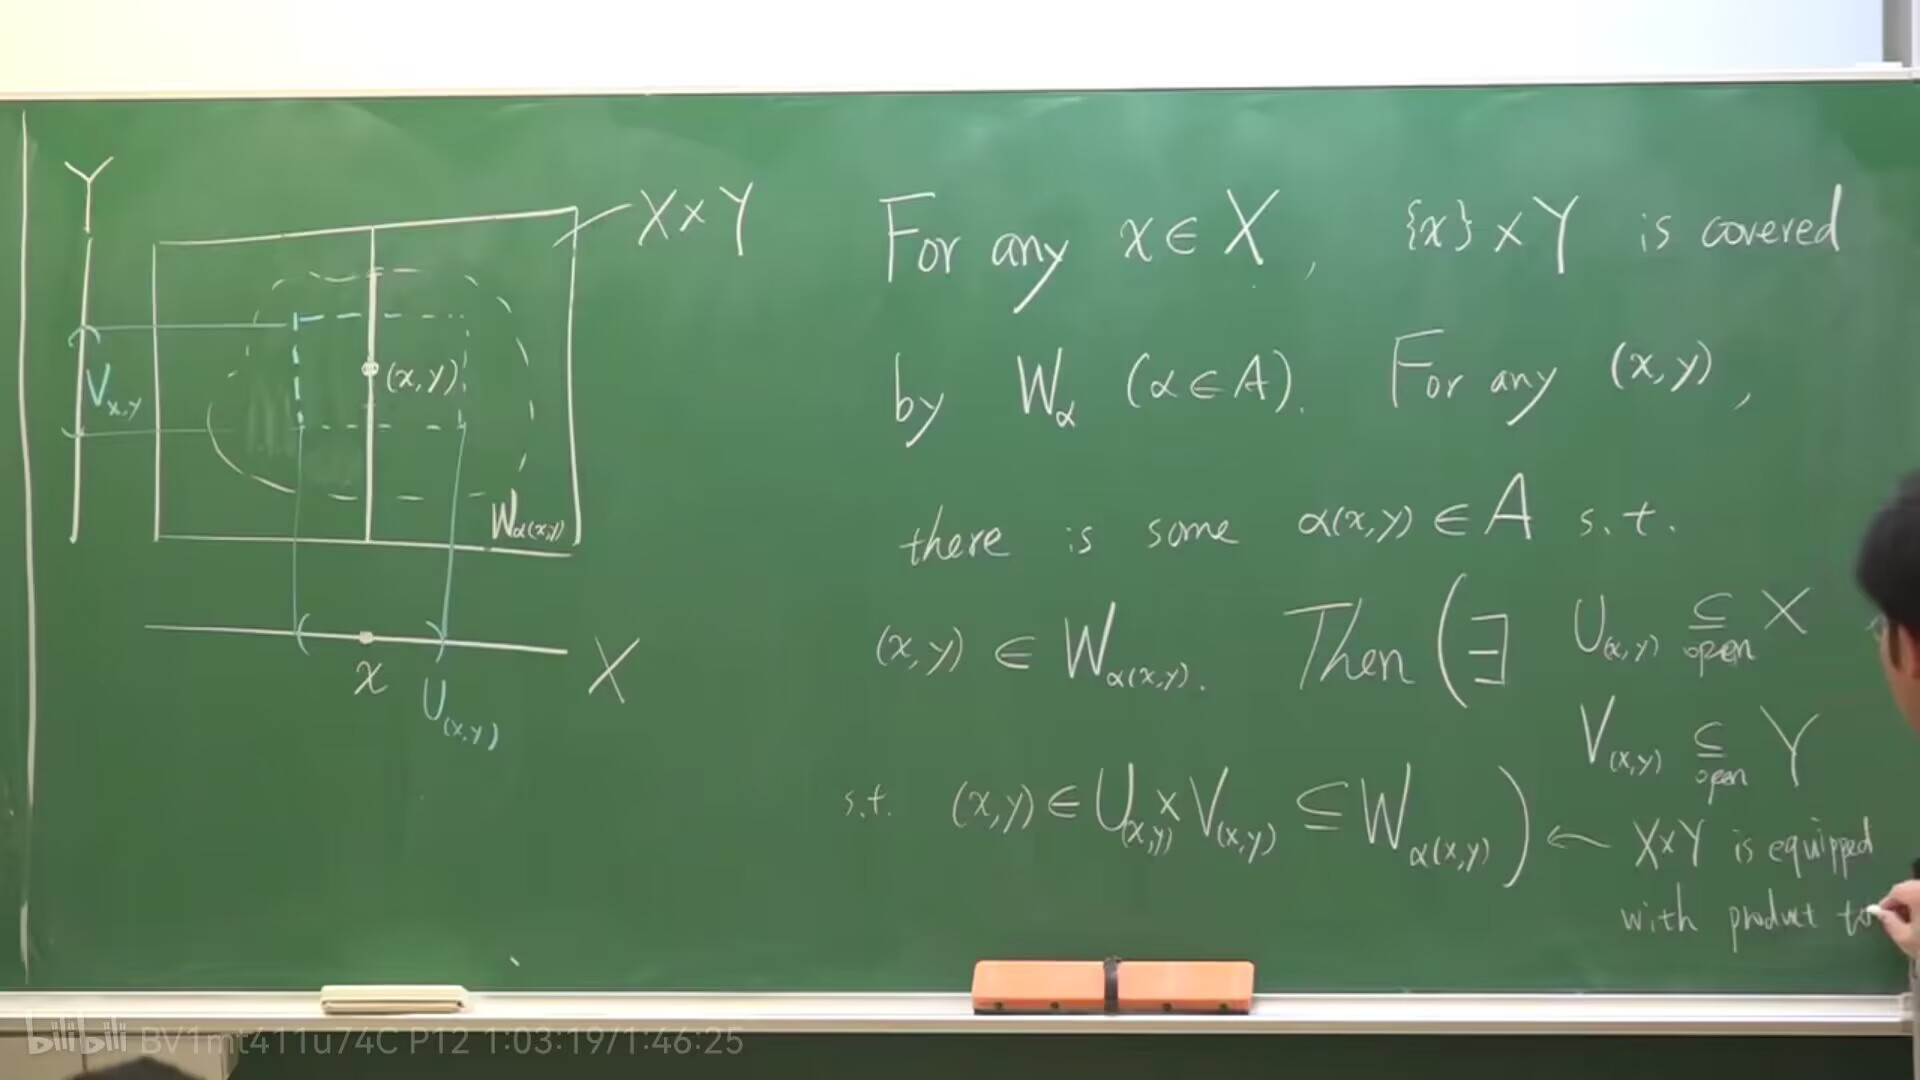 Y
X×Y
V_{x,y}
(x,y)
W_{α(x,y)}
x
X
U_{(x,y)}
For any x∈X, {x}×Y is covered
by W_α (α∈A). For any (x,y),
there is some α(x,y)∈A s.t.
(x,y) ∈ W_{α(x,y)}. Then (∃ U_{(x,y)} ⊆_{open} X
V_{(x,y)} ⊆_{open} Y
s.t. (x,y)∈U_{(x,y)}×V_{(x,y)} ⊆ W_{α(x,y)}) ← X×Y is equipped
with product to
bilibili BV1mt411u74C P12 1:03:19/1:46:25